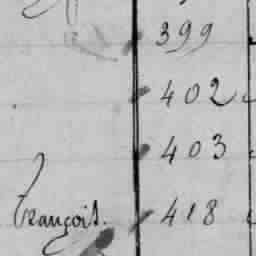 399
402
403
François. 418